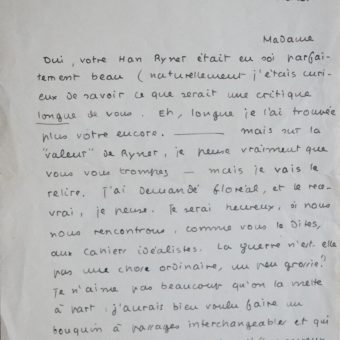 Madame
Oui, votre Han Ryner était en soi parfai-
tement beau (naturellement j'étais curi-
eux de savoir ce que serait une critique
longue de vous. Eh, longue je l'ai trouvée
plus vôtre encore. ——— mais sur la
"valeur" de Ryner, je pense vraiment que
vous vous trompez — mais je vais le
relire. J'ai demandé floréal, et le rece-
vrai, je pense. Je serai heureux, si nous
nous rencontrons, comme vous le dites,
aux Cahiers idéalistes. La guerre n'est-elle
pas une chose ordinaire, un peu grossie?
Je n'aime pas beaucoup qu'on la mette
à part : j'aurais bien voulu faire un
bouquin à passages interchangeables et qui